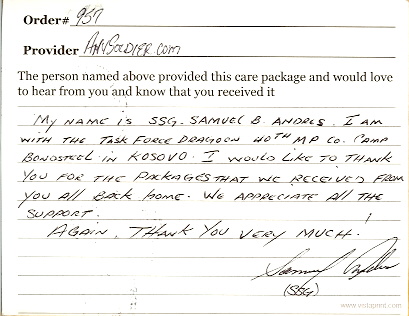 Order# 957
Provider AnySoldier.com
The person named above provided this care package and would love
to hear from you and know that you received it
My name is SSG. Samuel B Andres. I am
with the Task Force Dragoon 40th MP Co. Camp
Bondsteel in Kosovo. I would like to thank
you for the packages that we received from
you all back home. We appreciate all the
support.
Again, thank you very much!
(SSG)
www.vistaprint.com